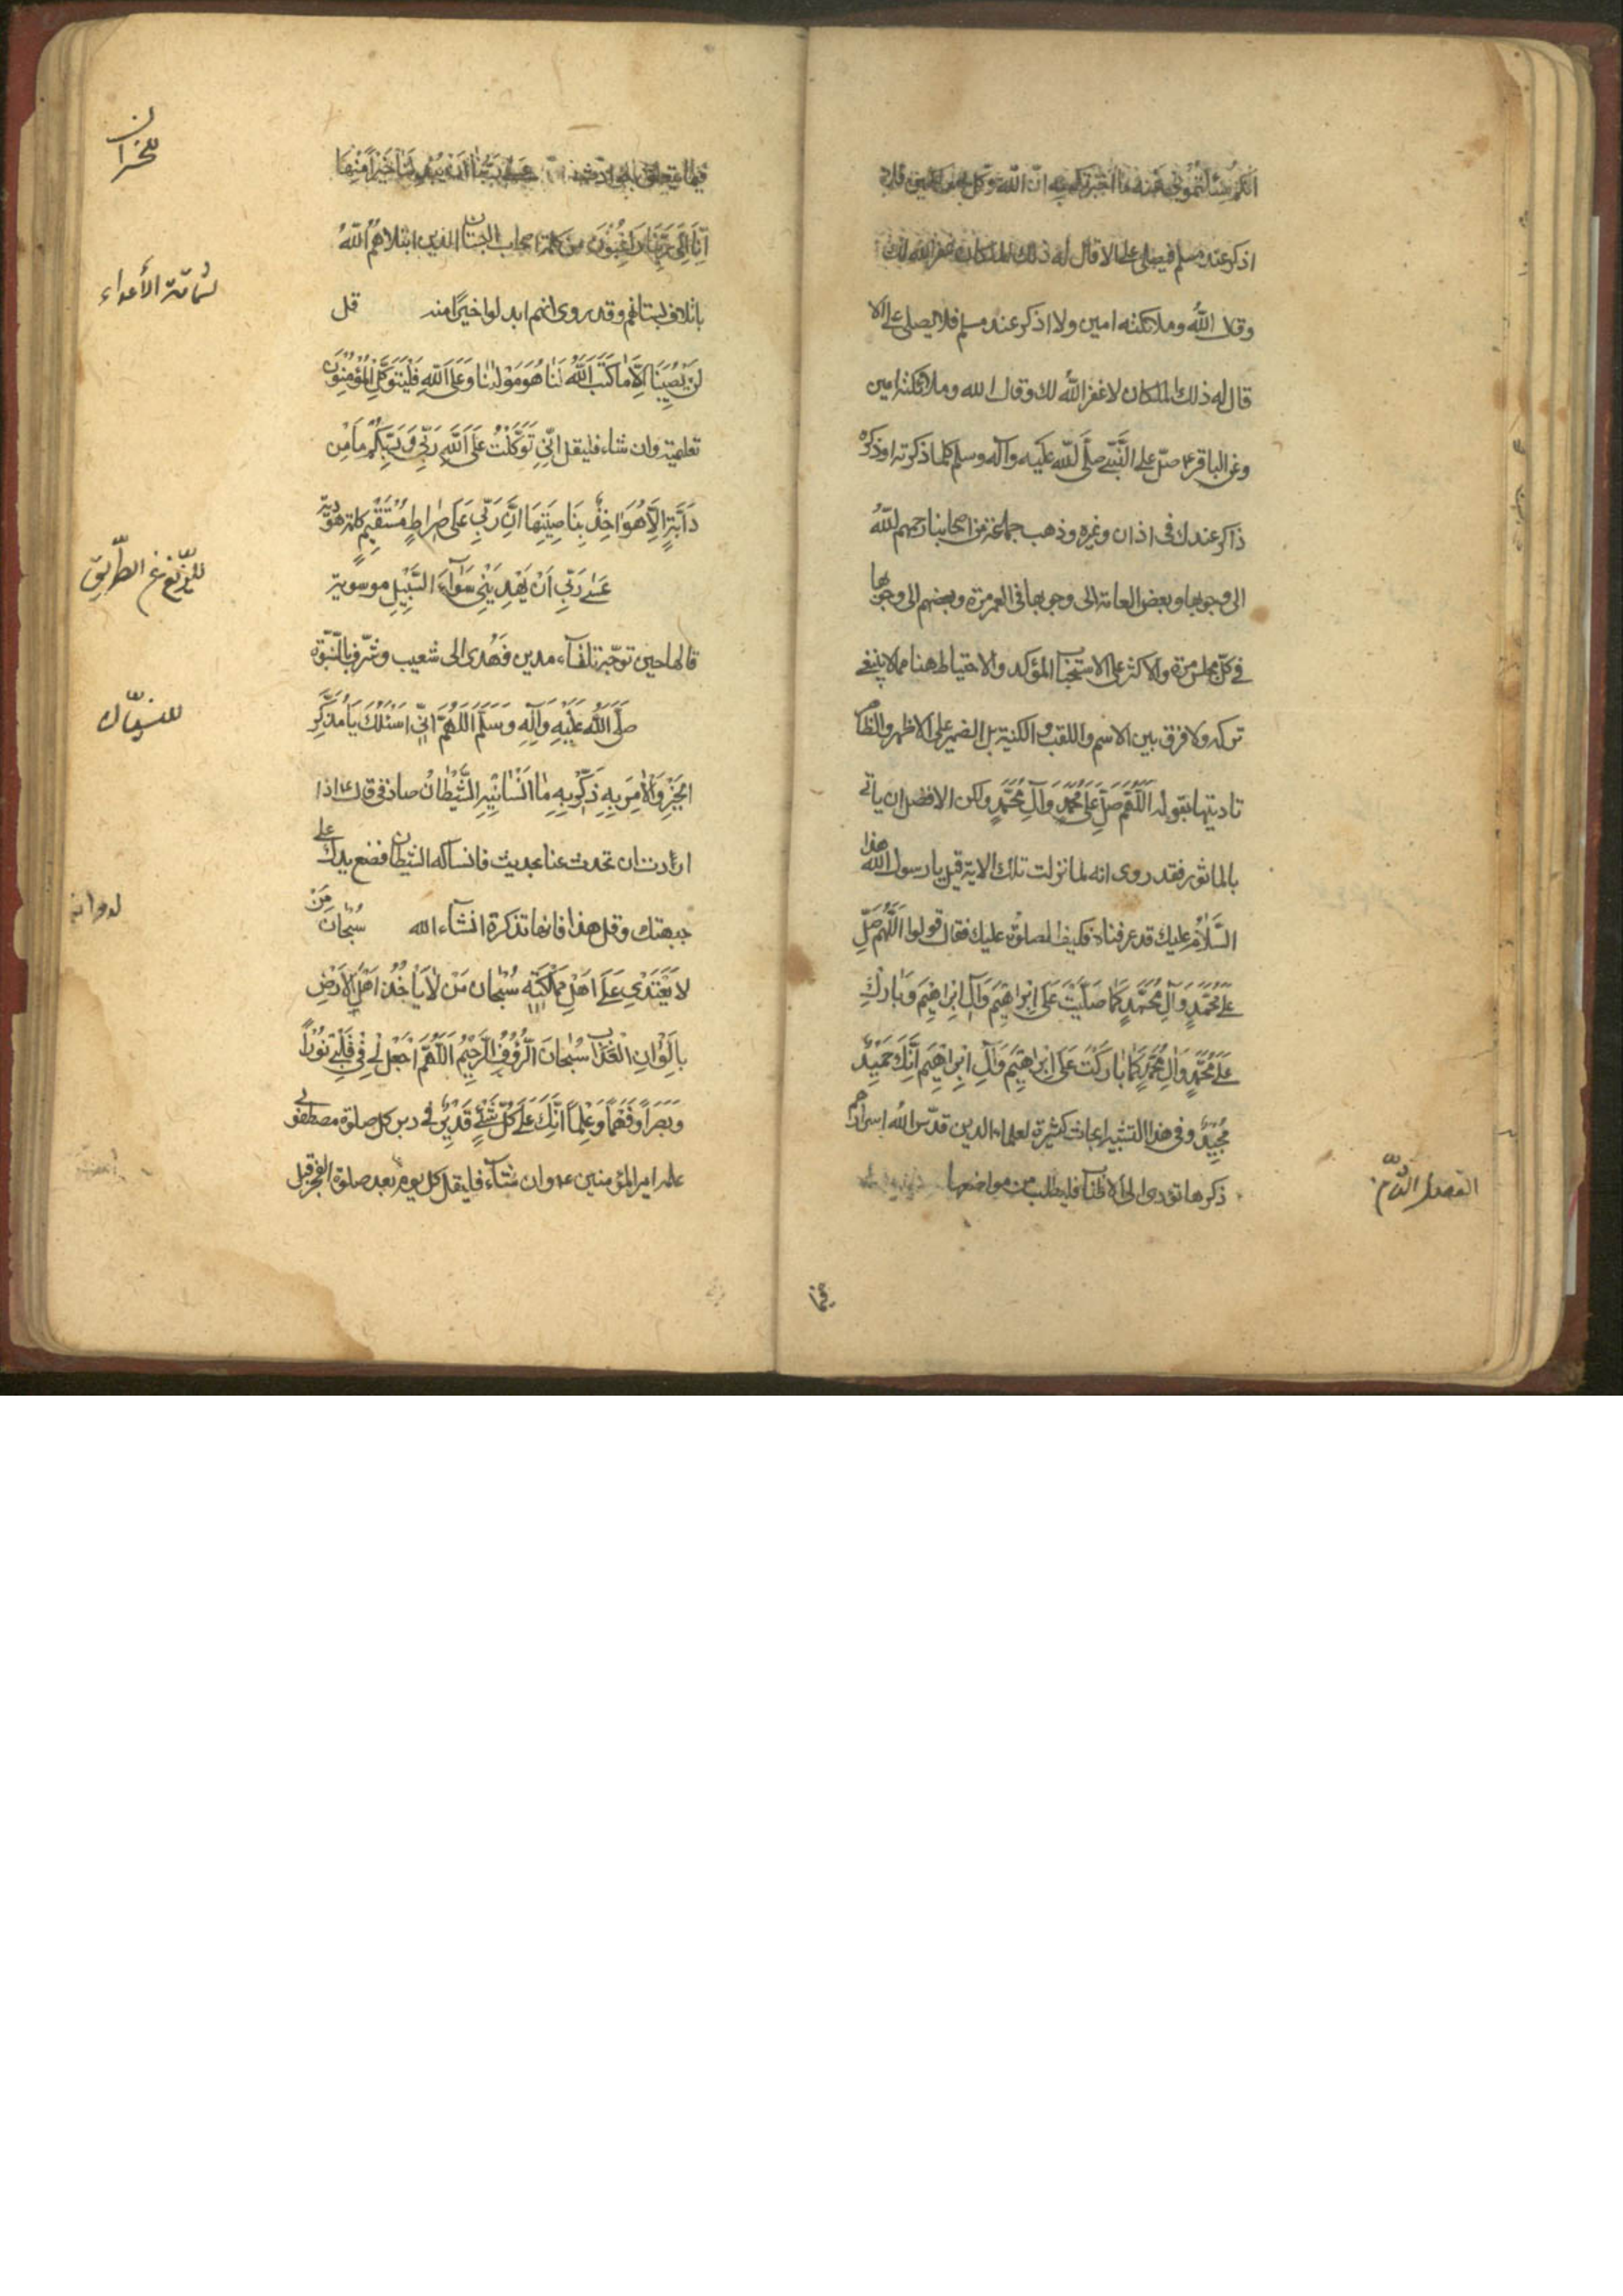 انكم سئلتموني عنه ما اخبرتكم به ان الله وكل بي ملكين فلا
اذكر عند مسلم فيصلي علي الا قال له ذلك الملكان غفر الله لك
وقال الله وملائكته امين ولا اذكر عند مسلم فلا يصلي علي الا
قال له ذلك الملكان لا غفر الله لك وقال الله وملائكته امين
وعن الباقر ع صلّ على النَّبيّ صلَّى اللّٰه عليه وآله وسلم كلما ذكرته او ذكره
ذاكر عندك في اذان وغيره وذهب جماعة من اصحابنا رحمهم اللّٰه
الى وجوبها وبعض العامة الى وجوبها في العمر مرة وبعضهم الى وجوبها
في كلّ مجلس مرة والاكثر على الاستحباب المؤكد والاحتياط هنا مما لا ينبغي
تركه ولا فرق بين الاسم واللقب والكنية بل الضمير على الاظهر والظاهر
تاديتها بقوله اَللّٰهُمَّ صَلِّ عَلىٰ مُحَمَّدٍ وَآلِ مُحَمَّدٍ ولكن الافضل ان ياتي
بالماثور فقد روى انه لما نزلت تلك الاية قيل يا رسول اللّٰه هذا
السَّلامُ عليك قد عرفناه فكيف الصلوة عليك فقال قولوا اَللّٰهُمَّ صَلِّ
عَلىٰ مُحَمَّدٍ وَآلِ مُحَمَّدٍ كَمٰا صَلَّيْتَ عَلىٰ اِبْرٰاهيمَ وَآلِ اِبْرٰاهيمَ وَبٰارِكْ
عَلىٰ مُحَمَّدٍ وَآلِ مُحَمَّدٍ كَمٰا بٰارَكْتَ عَلىٰ اِبْرٰاهيمَ وَآلِ اِبْرٰاهيمَ اِنَّكَ حَميدٌ
مَجيدٌ وفي هذا التشبيه ابحاث كثيرة لعلماء الدين قدّس اللّٰه اسرارهم
ذكرها تودى الى الاطناب فليطلب من مواضعها
الفصل الثامن
فيما
فيما يتعلق عَسىٰ رَبُّنٰا اَنْ يُبْدِلَنٰا خَيْراً مِنْهٰا
للخسران
اِنّٰا اِلىٰ رَبِّنٰا رٰاغِبُونَ من كلمة اصحاب الجنان الذين ابتلاهم اللّٰهُ
باتلاف بستانهم وقد روى انهم ابدلوا خيراً منه قل
لشماتة الأعداء
لَنْ يُصيبَنٰا اِلّٰا مٰا كَتَبَ اللّٰهُ لَنٰا هُوَ مَوْلٰينٰا وَعَلَى اللّٰهِ فَلْيَتَوَكَّلِ الْمُؤْمِنُونَ
تعليمية وان شاء فليقل اِنّي تَوَكَّلْتُ عَلَى اللّٰهِ رَبّي وَرَبِّكُمْ مٰا مِنْ
دٰابَّةٍ اِلّٰا هُوَ اٰخِذٌ بِنٰاصِيَتِهٰا اِنَّ رَبّي عَلىٰ صِرٰاطٍ مُسْتَقيمٍ كلمة هوديّة
عَسىٰ رَبّي اَنْ يَهْدِيَني سَوٰآءَ السَّبيلِ موسوية
للزّيغ عن الطّريق
قالها حين توجّه تلقآء مدين فهُدى الى شعيب وشرّف بالنّبوّة
صَلَّى اللّٰهُ عَلَيْهِ وَآلِهِ وَسَلَّمَ اَللّٰهُمَّ اِنّي اَسْئَلُكَ يٰا مُذَكِّرَ
للنسيان
الْخَيْرِ وَالْاٰمِرَ بِهِ ذَكِّرْني مٰا اَنْسٰانيهِ الشَّيْطٰانُ صادقي قال ع اذا
اردت ان تحدث عنا بحديث فانساكه الشيطان فضع يدك على
جبهتك وقل هذا فانها تذكرة انشآء الله سُبْحٰانَ مَنْ
لٰا يَعْتَدي عَلىٰ اَهْلِ مَمْلَكَتِهِ سُبْحٰانَ مَنْ لٰا يَأْخُذُ اَهْلَ الْاَرْضِ
بِاَلْوٰانِ الْعَذٰابِ سُبْحٰانَ الرَّؤُفِ الرَّحيمِ اَللّٰهُمَّ اجْعَلْ لي في قَلْبي نُوراً
وَبَصَراً وَفَهْماً وَعِلْماً اِنَّكَ عَلىٰ كُلِّ شَيْءٍ قَديرٌ في دبر كل صلوة مصطفوي
علمه امير المؤمنين ع وان شآء فليقل كل يوم بعد صلوة الفجر قبل